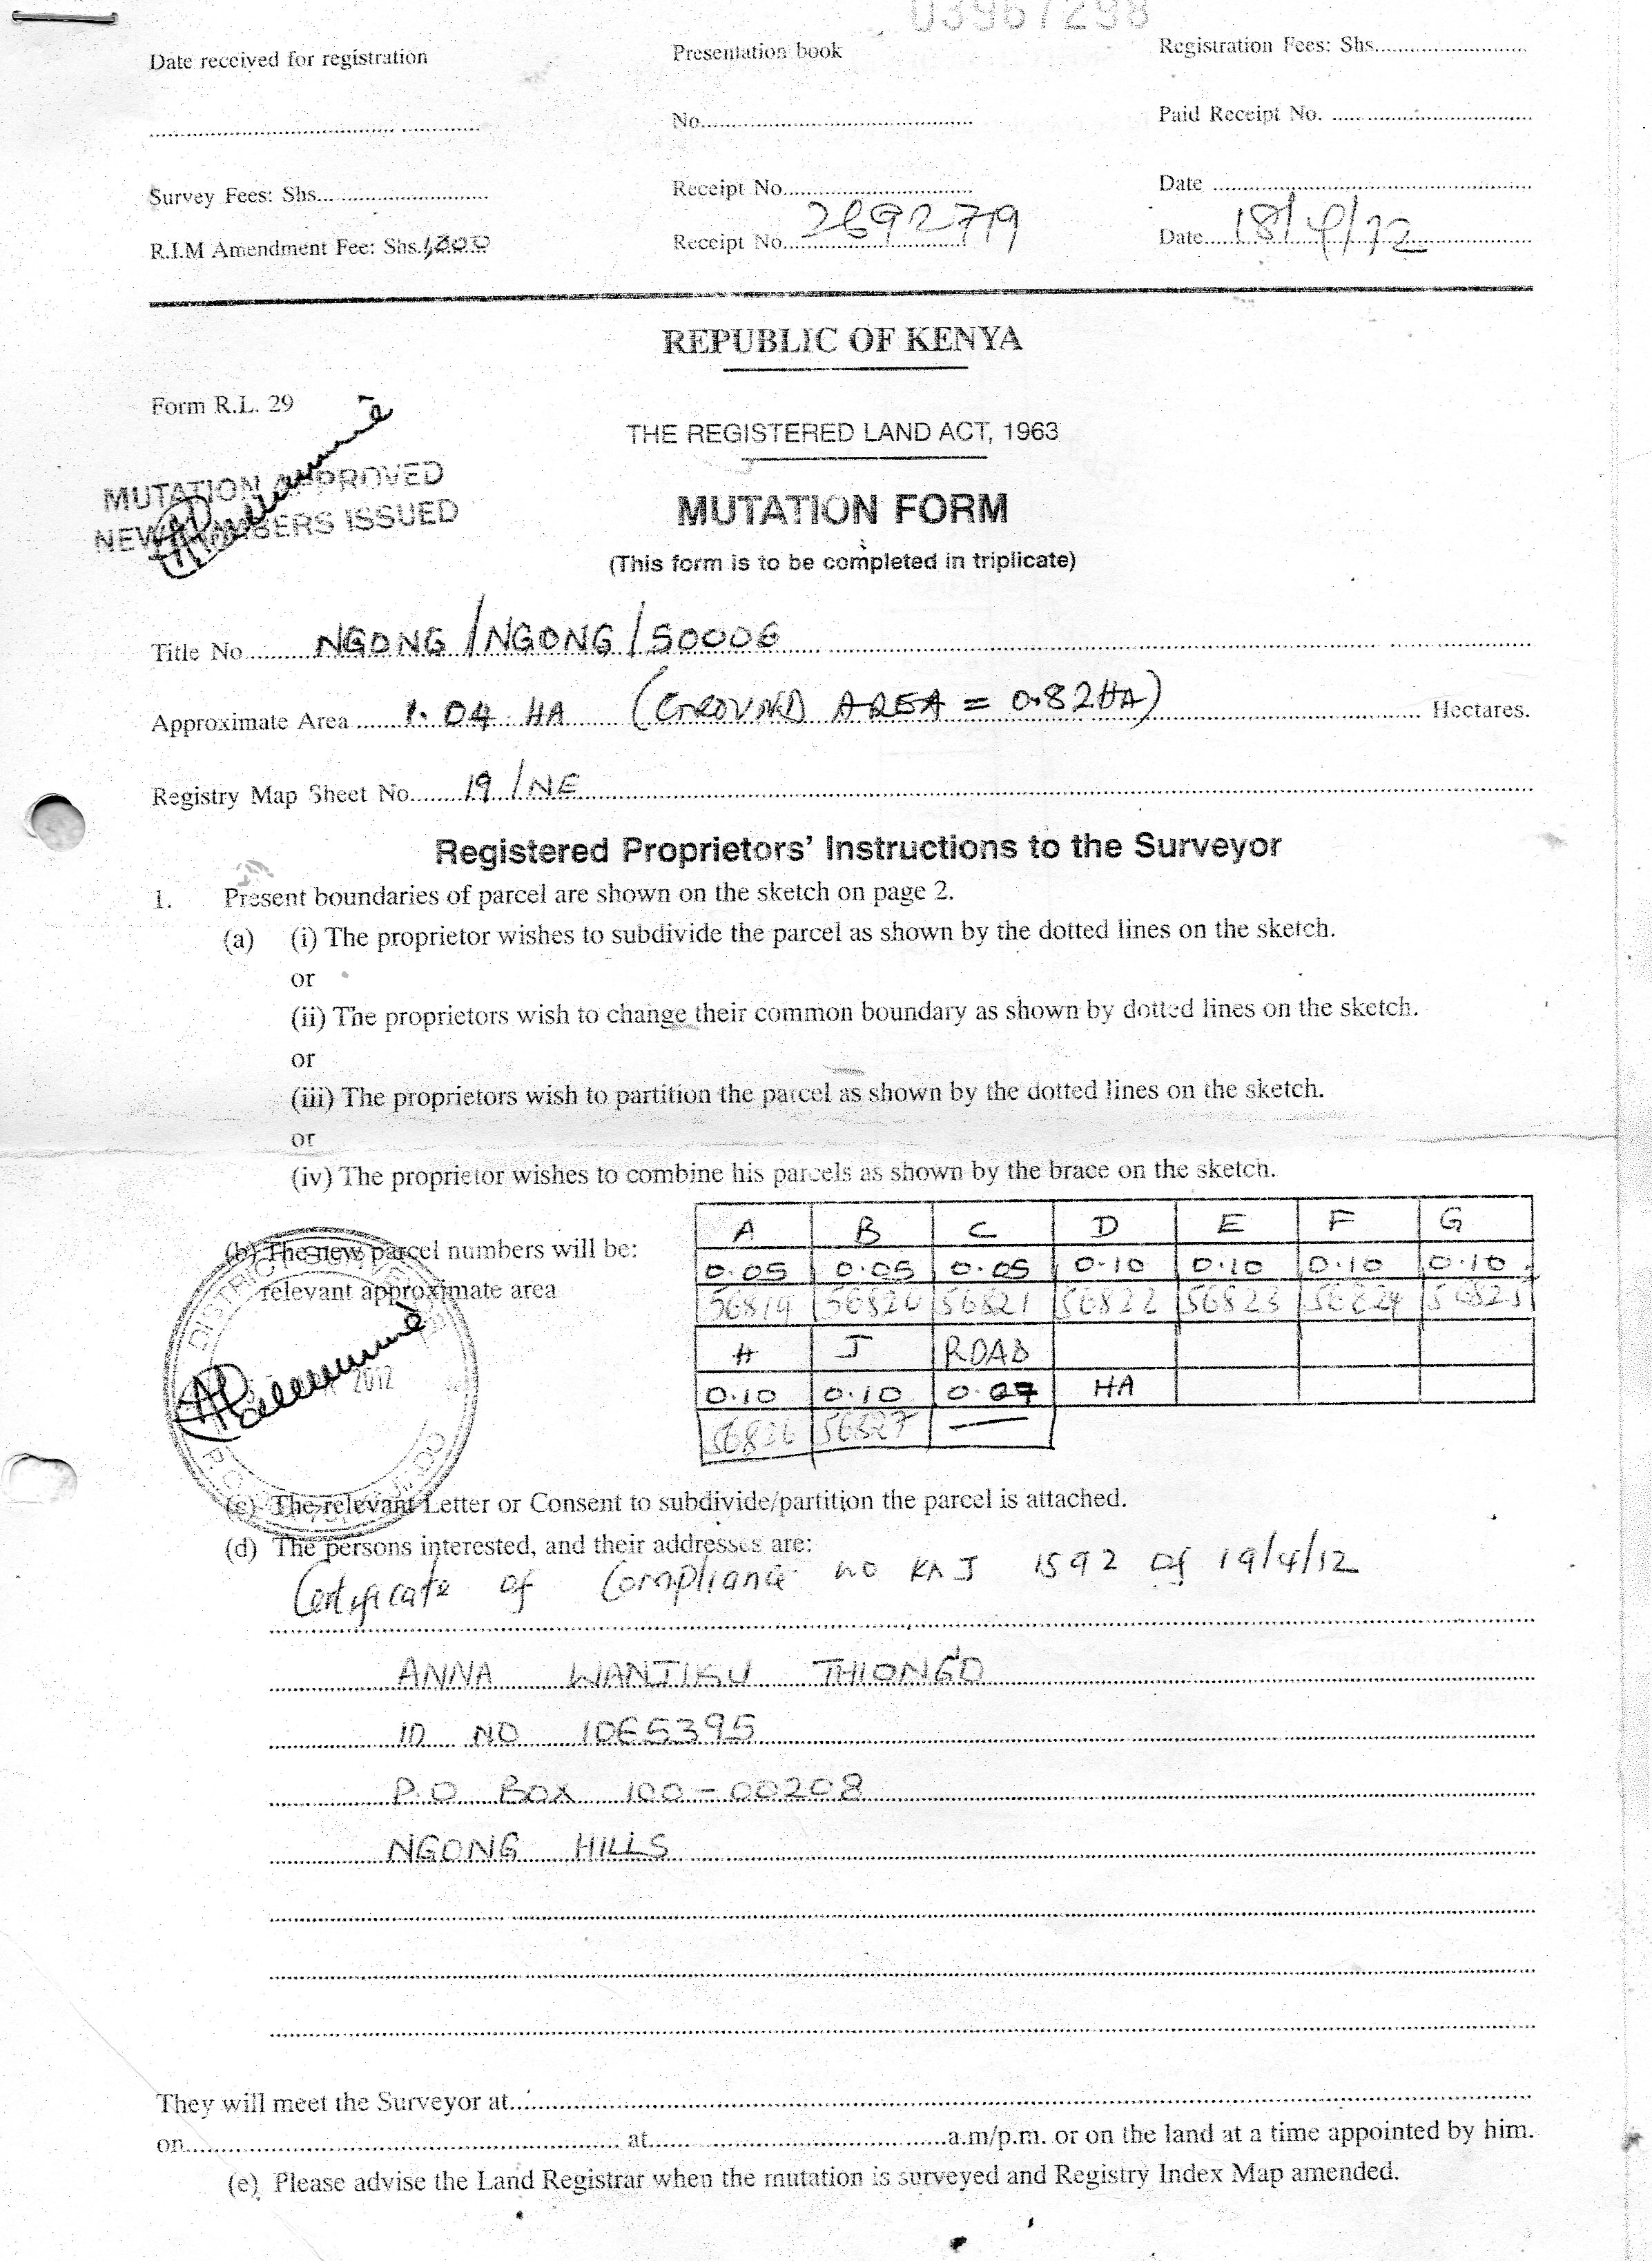 03967298
Date received for registration Presentation book Registration Fees: Shs..........
.......... No.......... Paid Receipt No. ..........
Survey Fees: Shs.......... Receipt No.......... Date ..........
R.I.M Amendment Fee: Shs. 1,300 Receipt No. 2692719 Date 18/4/12
REPUBLIC OF KENYA
Form R.L. 29
THE REGISTERED LAND ACT, 1963
MUTATION APPROVED
NEW NUMBERS ISSUED
MUTATION FORM
(This form is to be completed in triplicate)
Title No. NGONG/NGONG/50006
Approximate Area 1.04 HA (GROUND AREA = 0.82HA) Hectares.
Registry Map Sheet No. 19/NE
Registered Proprietors' Instructions to the Surveyor
1. Present boundaries of parcel are shown on the sketch on page 2.
(a) (i) The proprietor wishes to subdivide the parcel as shown by the dotted lines on the sketch.
or
(ii) The proprietors wish to change their common boundary as shown by dotted lines on the sketch.
or
(iii) The proprietors wish to partition the parcel as shown by the dotted lines on the sketch.
or
(iv) The proprietor wishes to combine his parcels as shown by the brace on the sketch.
(b) The new parcel numbers will be:
relevant approximate area
A B C D E F G
0.05 0.05 0.05 0.10 0.10 0.10 0.10
56819 56820 56821 56822 56823 56824 56825
H J ROAD
0.10 0.10 0.07 HA
56826 56827 —
DISTRICT
2012
(c) The relevant Letter or Consent to subdivide/partition the parcel is attached.
(d) The persons interested, and their addresses are:
Certificate of Compliance no KAJ 1592 of 19/4/12
ANNA WANJIKU THIONG'O
ID NO 1065395
P.O BOX 100-00208
NGONG HILLS
They will meet the Surveyor at..........
on.......... at..........a.m/p.m. or on the land at a time appointed by him.
(e) Please advise the Land Registrar when the mutation is surveyed and Registry Index Map amended.